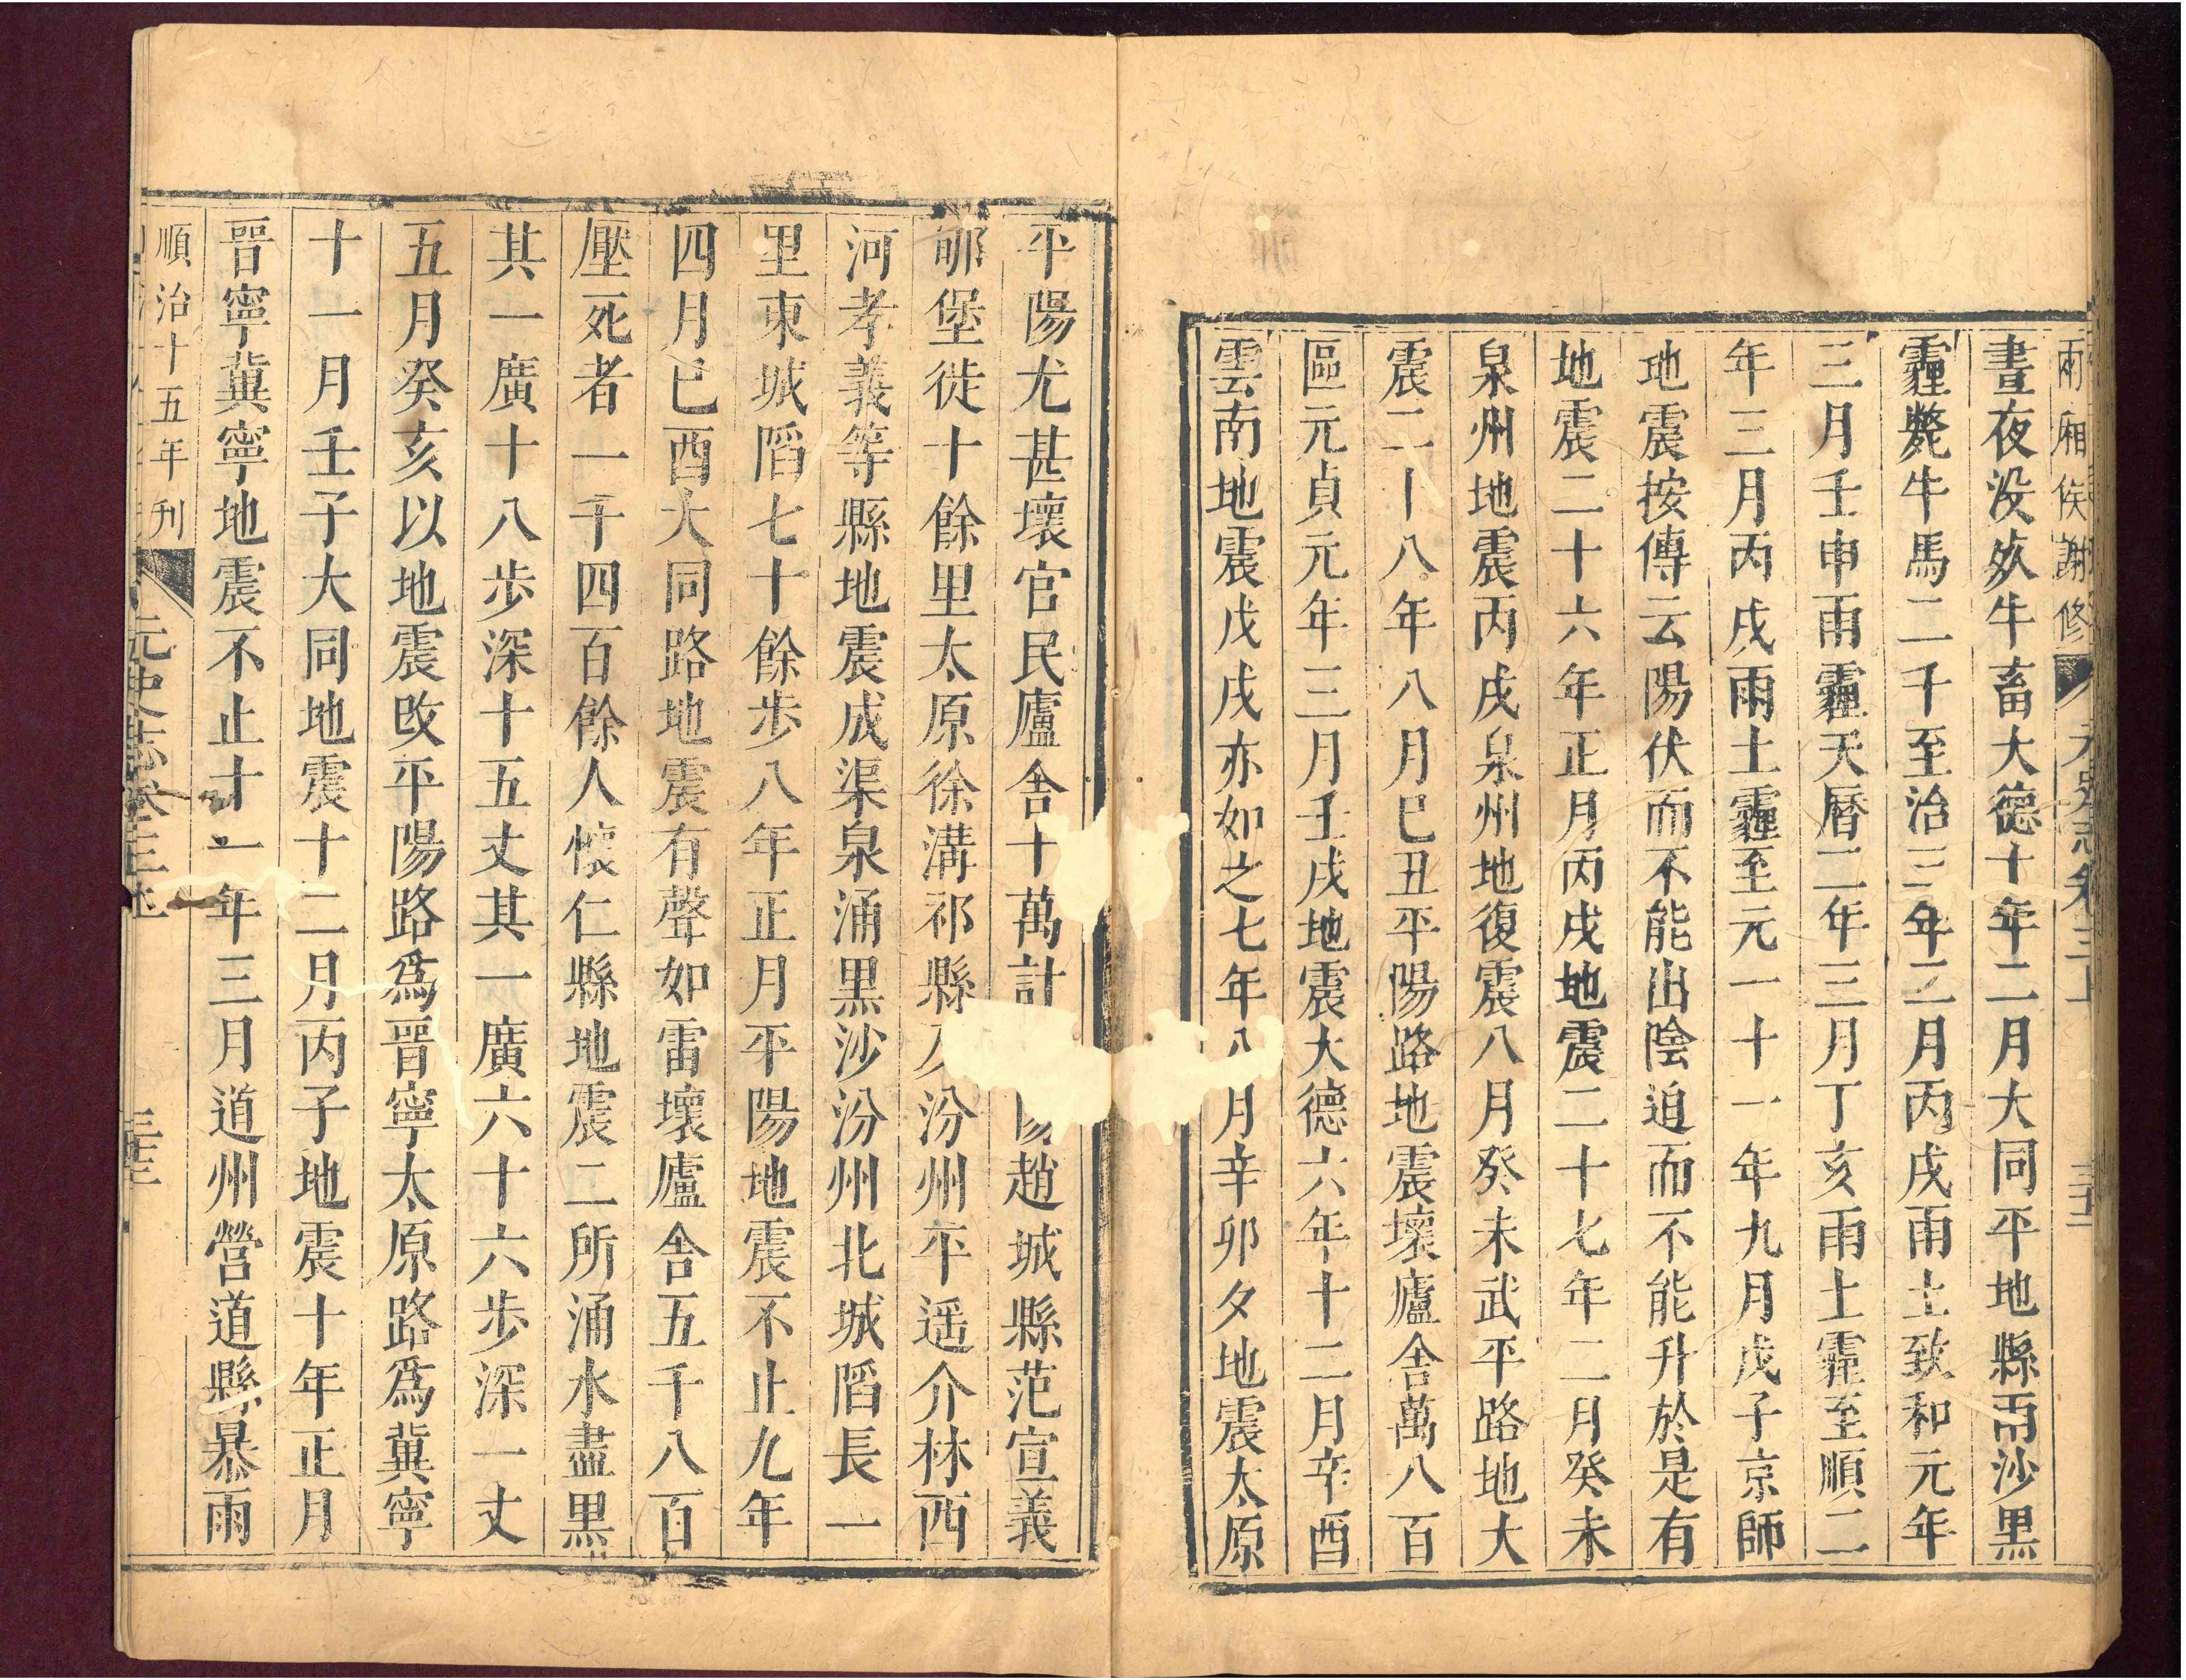 兩廂侯謝修 元史志卷三十
晝夜没死牛畜大德十年二月大同平地縣雨沙黑
霾斃牛馬二千至治三年二月丙戌雨土致和元年
三月壬申雨霾天曆二年三月丁亥雨土霾至順二
年三月丙戌雨土霾至元一十一年九月戊子京師
地震按傳云陽伏而不能出陰迫而不能升於是有
地震二十六年正月丙戌地震二十七年二月癸未
泉州地震丙戌泉州地復震八月癸未武平路地大
震二十八年八月巳丑平陽路地震壞廬舍萬八百
區元貞元年三月壬戌地震大德六年十二月辛酉
雲南地震戊戌亦如之七年八月辛卯夕地震太原
平陽尤甚壞官民廬舍十萬計趙城縣范宣義
郇堡徙十餘里太原徐溝祁縣及汾州平遥介林西
河孝義等縣地震成渠泉涌黑沙汾州北城陷長一
里東城陷七十餘步八年正月平陽地震不止九年
四月巳酉大同路地震有聲如雷壞廬舍五千八百
壓死者一千四百餘人懷仁縣地震二所涌水盡黑
其一廣十八步深十五丈其一廣六十六步深一丈
五月癸亥以地震改平陽路爲晉寧太原路爲冀寧
十一月壬子大同地震十二月丙子地震十年正月
晉寧冀寧地震不止十一年三月道州營道縣暴雨
順治十五年刊 元史志卷三